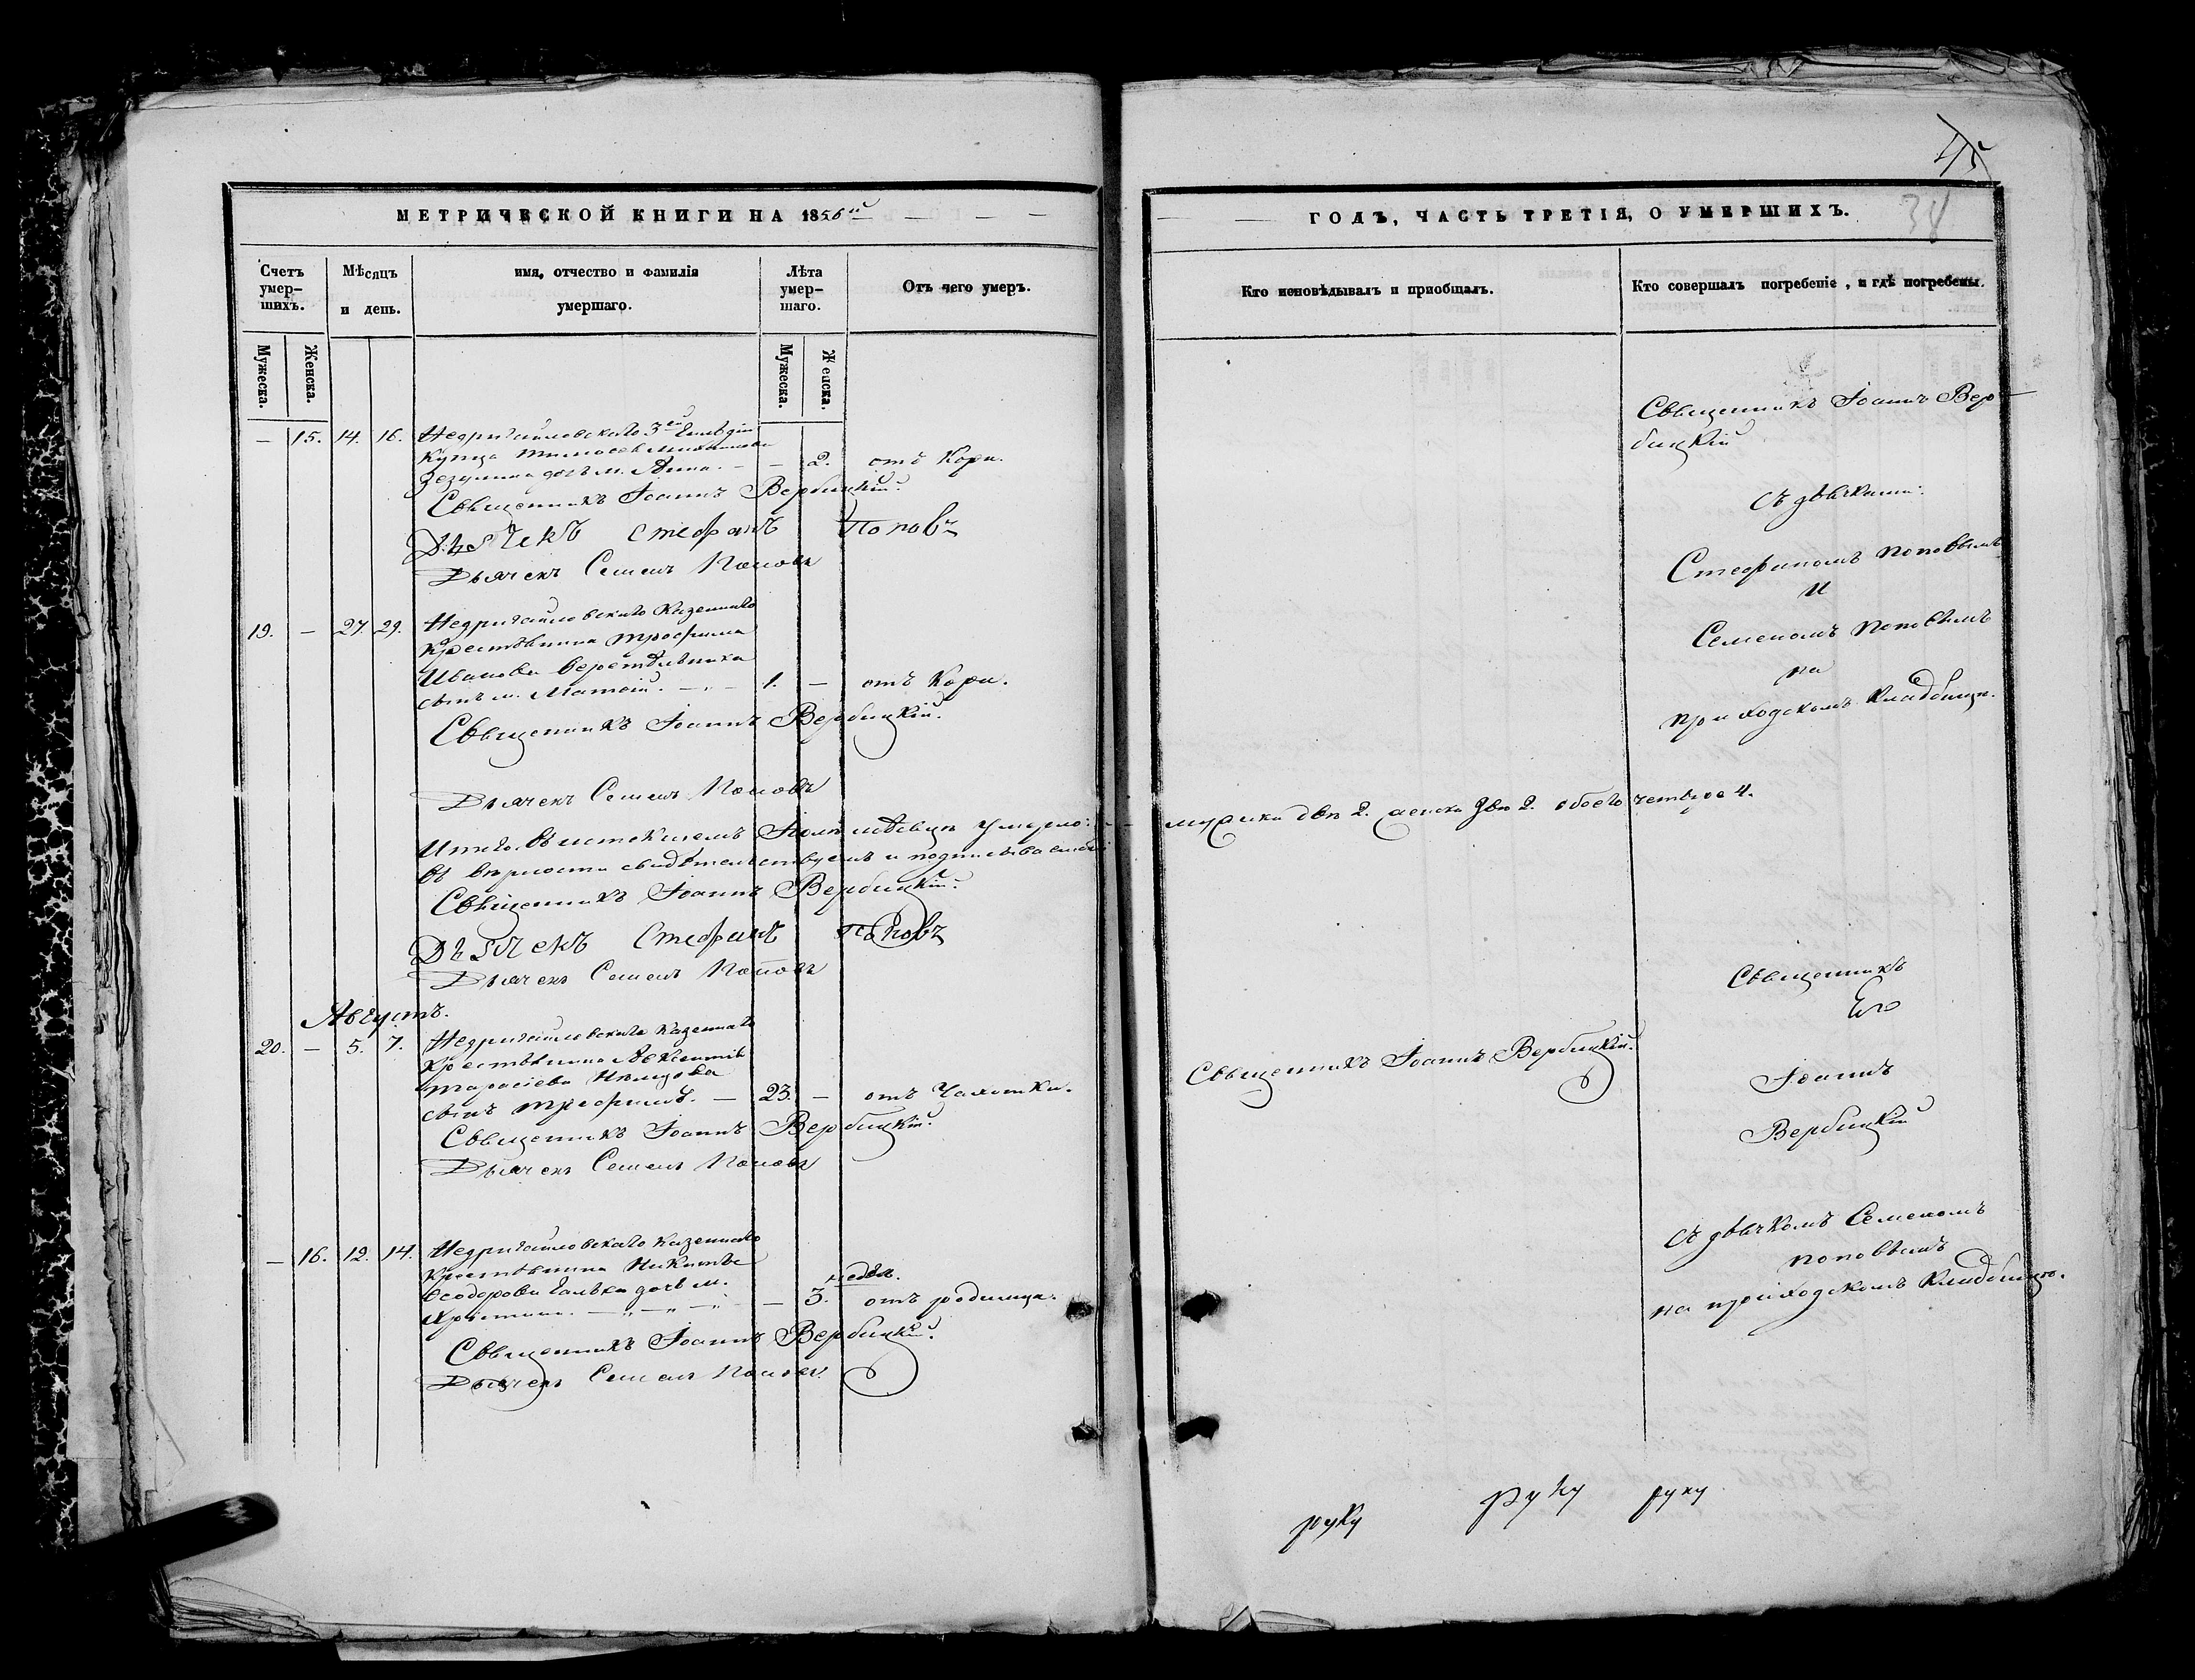 МЕТРИЧЕСКОЙ КНИГИ НА 1856й
Счетъ умер-шихъ.
Мѣсяцъ и день.
имя, отчество и фамилія умершаго.
Лѣта умер-шаго.
Отъ чего умеръ.
Мужеска.
Женска.
Мужеска.
Женска.
— 15. 14. 16. Недригайловскаго 3ей Гильдіи
Купца
дочь м. Анна. — — 2. отъ Кори.
Священникъ Іоаннъ Вербицкій.
Дьячекъ Стефанъ Поповъ
Дьячекъ Семенъ Поповъ
19. — 27. 29. Недригайловскаго Казеннаго
Крестьянина Трофима
Иванова Веретельника
сынъ м. Матвій. — 1. — отъ Кори.
Священникъ Іоаннъ Вербицкій.
Дьячекъ Семенъ Поповъ
Итого въ Іюлѣ мѣсяцѣ умерло:
въ вѣрности свидѣтельствуемъ и подписываемся
Священникъ Іоаннъ Вербицкій.
Дьячекъ Стефанъ Поповъ
Дьячекъ Семенъ Поповъ
Августъ.
20. — 5. 7. Недригайловскаго Казеннаго
Крестьянина Авксентія
Тарасіева
сынъ Трофимъ. — 23. — отъ Чахотки.
Священникъ Іоаннъ Вербицкій.
Дьячекъ Семенъ Поповъ
— 16. 12. 14. Недригайловскаго Казеннаго
Крестьянина Никиты
Ѳеодорова дочь м. недѣл.
Христина. — 3. отъ родимца.
Священникъ Іоаннъ Вербицкій.
Дьячекъ Семенъ Поповъ
45
38
ГОДЪ, ЧАСТЬ ТРЕТІЯ, О УМЕРШИХЪ.
Кто исповѣдывалъ и пріобщалъ.
Кто совершалъ погребеніе, и гдѣ погребены.
Священникъ Іоаннъ Вер-
бицкій
съ дьячками:
Стефаномъ Поповымъ
и
Семеномъ Поповымъ
на
приходскомъ Кладбищѣ.
мужска два 2. женска две 2. обоего четверо 4.
Священникъ Іоаннъ Вербицкій.
Священникъ
Іоаннъ
Вербицкій
съ дьячкомъ Семеномъ
Поповымъ
на приходскомъ Кладбищѣ.
руку руку руку